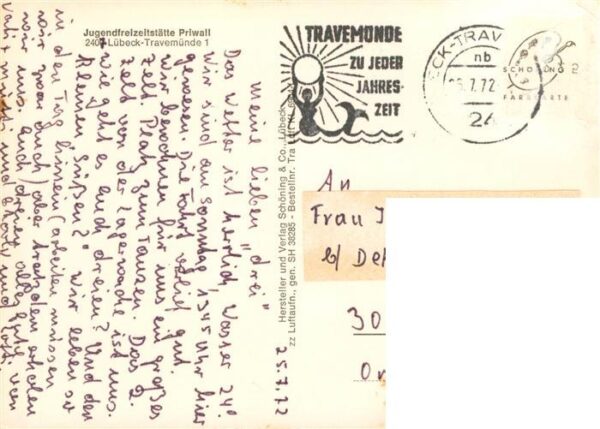 Jugendfreizeitstätte Priwall
2400 Lübeck-Travemünde 1
TRAVEMÜNDE
ZU JEDER
JAHRES-
ZEIT
ECK-TRAV
nb
25.7.72
24
SCHÖNING
FARBKARTE
Hersteller und Verlag Schöning & Co., Lübeck
zz Luftaufn., gen. SH 38285 - Bestellnr. Tra
25.7.72
Das meine lieben „drei“
Das Wetter ist herrlich, Wasser 24°
Wir sind am Sonntag 13.45 Uhr hier
gewesen. Die Fahrt verlief gut.
Wir bewohnen für uns ein großes
Zelt. Platz zum Tanzen. Das 2.
Zelt von der Lagerwache ist uns.
Wie geht es euch dreien? Und den
kleinen „Süßen“? Wir leben so
in den Tag hinein (arbeiten müssen
wir zwar auch) aber trotzdem erholen
wir uns. Auch dreien alles Gute von
An
Frau
b/ De
30